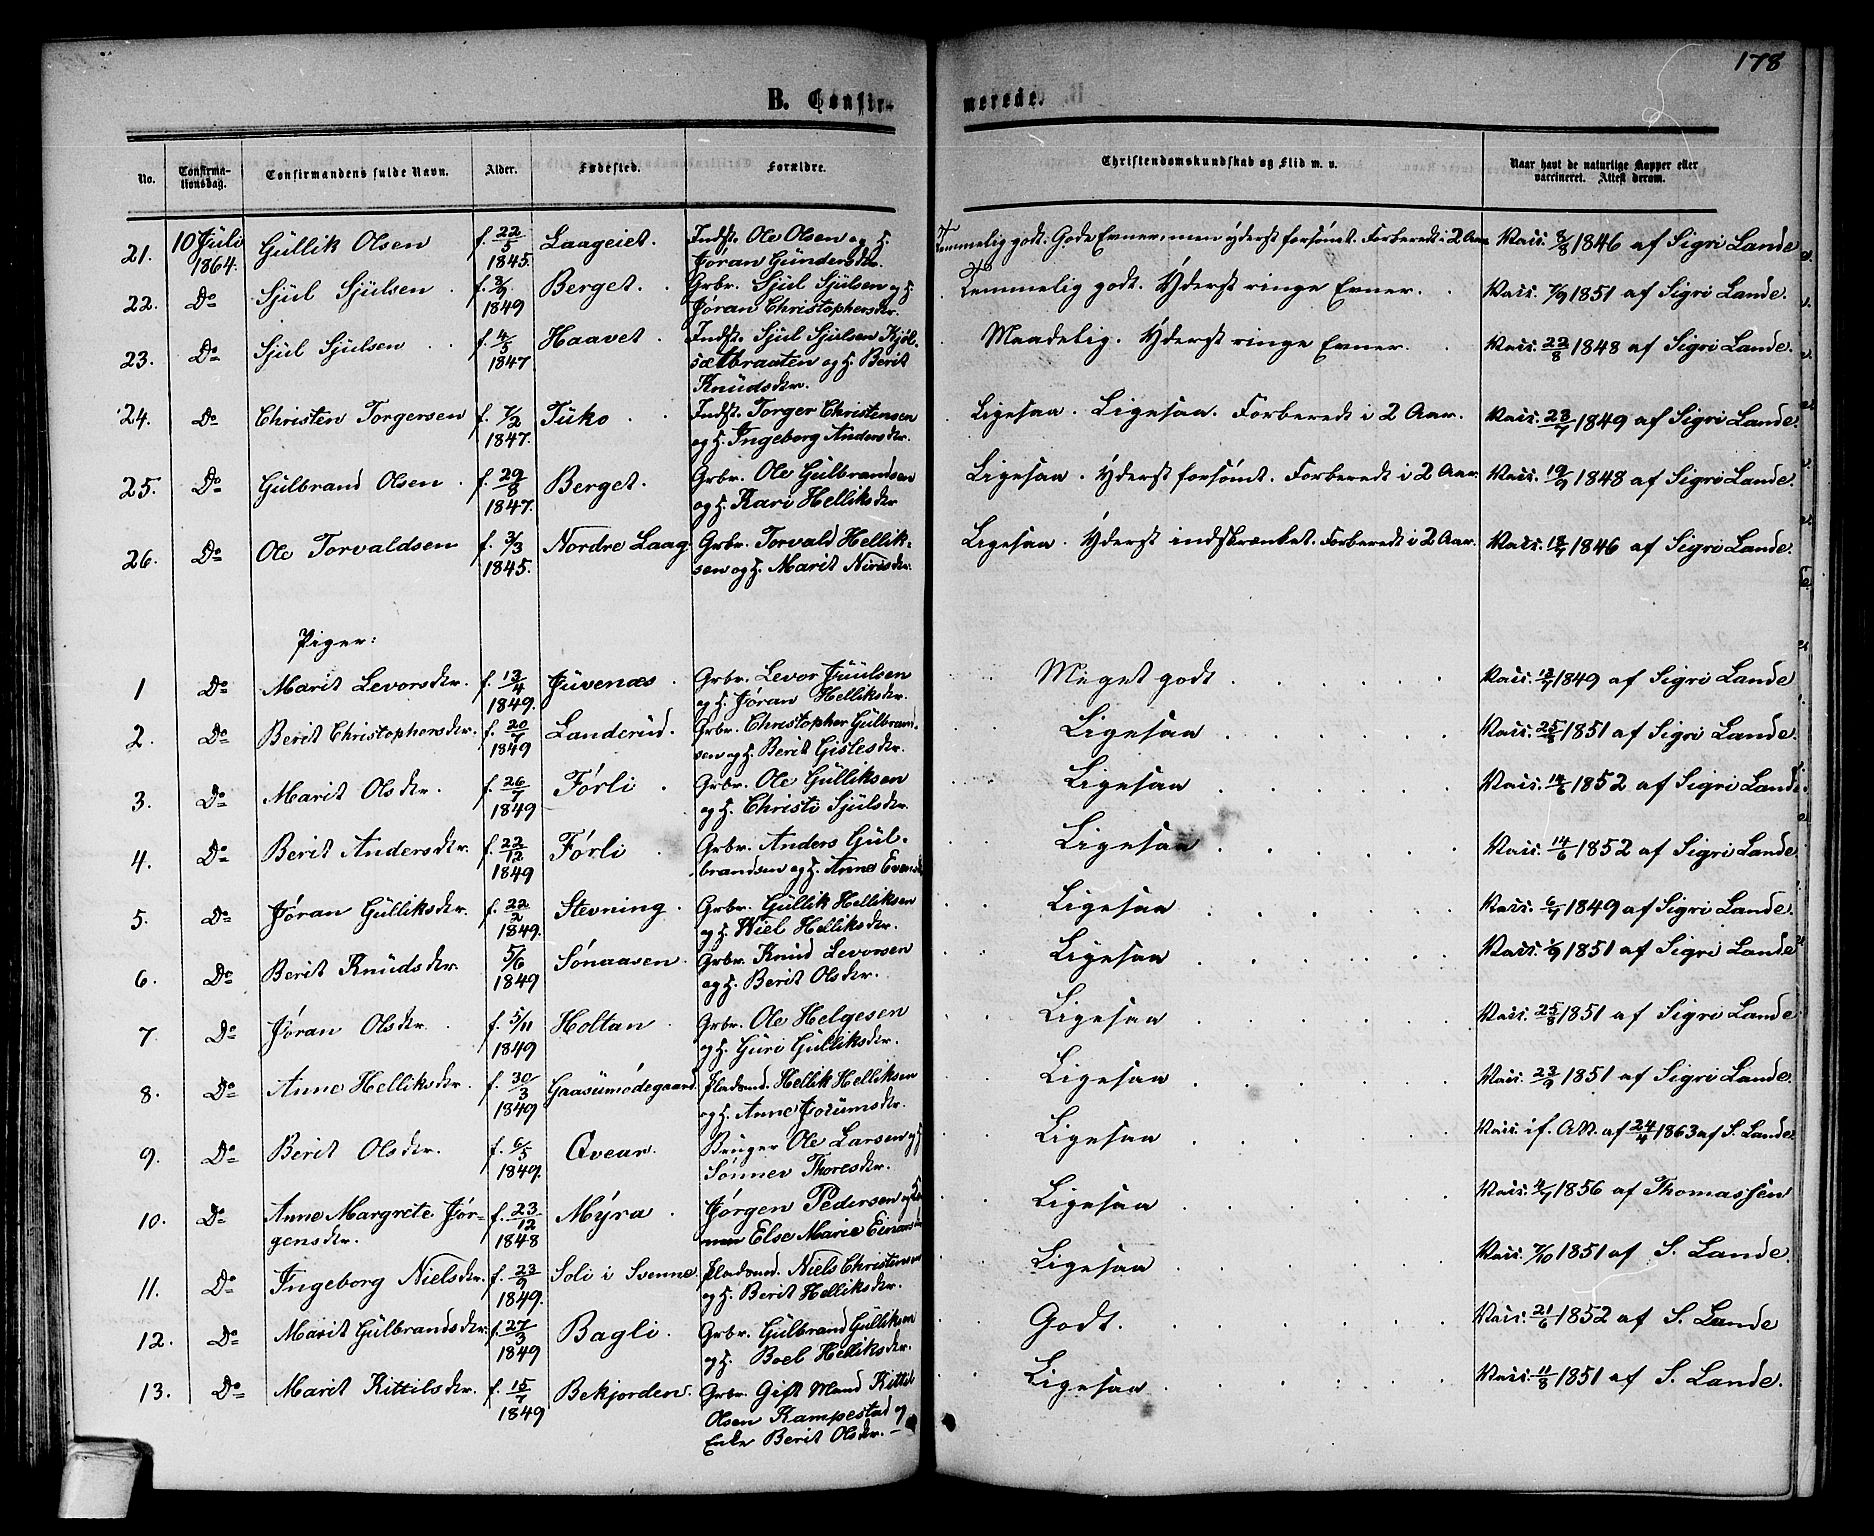 178
B. Confirmerede.
No. Confirmationsdag. Confirmandens fulde Navn. Alder. Fødested. Forældre. Christendomskundskab og Flid m. v. Naar havt de naturlige Kopper eller vaccineret. Attest derom.
21. 10 Juli 1864. Gullik Olsen f. 22/5 1845. Laageiet. Indst. Ole Olsen og H. Jøran Gundersdtr. Temmelig godt. Gode Evner, men yderst forsømt. Forberedt i 2 Aar Vacc. 8/8 1846 af Sigri Lande
22. Do Sjul Sjulsen f. 1849 Berget. Grbr. Sjul Sjulsen og H. Jøran Christophersdtr. Temmelig godt. Yderst ringe Evner. Vacc. 7/9 1851 af Sigri Lande.
23. Do Sjul Sjulsen f. 4/5 1847 Haavet. Indst. Sjul Sjulsen Kjølsætbraaten og H. Berit Knudsdtr. Maadelig. Yderst ringe Evner. Vacc. 22/8 1848 af Sigri Lande.
24. Do Christen Torgersen f. 7/2 1847. Tuko Indst. Torger Christensen og H. Ingeborg Andersdtr. Ligesaa. Ligesaa. Forberedt i 2 Aar. Vacc. 23/7 1849 af Sigri Lande.
25. Do Gulbrand Olsen f. 29/8 1847. Berget. Grbr. Ole Gulbrandsen og H. Kari Helliksdtr Ligesaa. Yderst forsømt. Forberedt i 2 Aar. Vacc. 19/9 1848 af Sigri Lande.
26. Do Ole Torvaldsen f. 3/3 1845. Nordre Laag Grbr. Torvald Helliksen og H. Marit Nirisdtr. Ligesaa. Yderst indskrænket. Forberedt i 2 Aar. Vacc. 1846 af Sigri Lande.
Piger:
1 Do Marit Levorsdtr. f. 13/4 1849. Juvenæs. Grbr. Levor Juulsen og H. Jøran Helliksdtr. Meget godt Vacc. 1849 af Sigri Lande
2. Do Berit Christophersdtr. f. 20/7 1849 Landerud. Grbr. Christopher Gulbrandsen og H. Berit Gislesdtr. Ligesaa Vacc. 25/8 1851 af Sigri Lande.
3. Do Marit Olsdtr. f. 26/7 1849 Førli Grbr. Ole Gulliksen og H. Christi Sjulsdtr. Ligesaa Vacc. 14/6 1852 af Sigri Lande
4. Do Berit Andersdtr. f. 22/12 1849 Førli Grbr. Anders Gulbrandsen og H. Anne Evensd Ligesaa Vacc. 14/6 1852 af Sigri Lande.
5. Do Jøran Gulliksdtr. f. 22/2 1849. Stevning. Grbr. Gullik Helliksen og H. Wiel Helliksdtr. Ligesaa Vacc. 6/7 1849 af Sigri Lande.
6. Do Berit Knudsdtr. 5/6 1849 Sønaasen Grbr. Knud Levorsen og H. Berit Olsdtr. Ligesaa Vacc. 1851 af Sigri Lande
7. Do Jøran Olsdtr. f. 5/11 1849 Holtan. Grbr. Ole Helgesen og H. Guri Gulliksdtr. Ligesaa Vacc. 25/8 1851 af Sigri Lande
8. Do Anne Helliksdtr. f. 30/3 1849 Gaasumødegaard. Pladsmd. Hellik Helliksen og H. Anne Jorumsdtr. Ligesaa Vacc. 23/9 1851 af Sigri Lande.
9. Do Berit Olsdtr. f. 6/5 1849. Qvear. Bruger Ole Larsen og H Sønnev Thoresdtr. Ligesaa Vacc. if. Att. af 24/4 1863 af S. Lande.
10. Do Anne Margrete Jørgensdtr. f. 23/12 1848 Myra Jørgen Pedersen og Else Marie Einarsd Ligesaa Vacc. 4/7 1856 af Thomassen
11. Do Ingeborg Nielsdtr. f. 23/9 1849. Soli i Svenne. Pladsmd. Niels Christensen og H. Berit Helliksdtr. Ligesaa Vacc. 7/10 1851 af S. Lande.
12. Do Marit Gulbrandsdtr. f. 27/3 1849 Bagli. Grbr. Gulbrand Gulliksen og H. Boel Helliksdtr. Godt. Vacc. 21/6 1852 af S. Lande
13. Do Marit Kittilsdtr. f. 15/7 1849 Bekjorden. Grbr. Gift Mand Kittil Olsen Kampestad og Enke Berit Olsdtr. Ligesaa Vacc. 11/8 1851 af S. Lande.